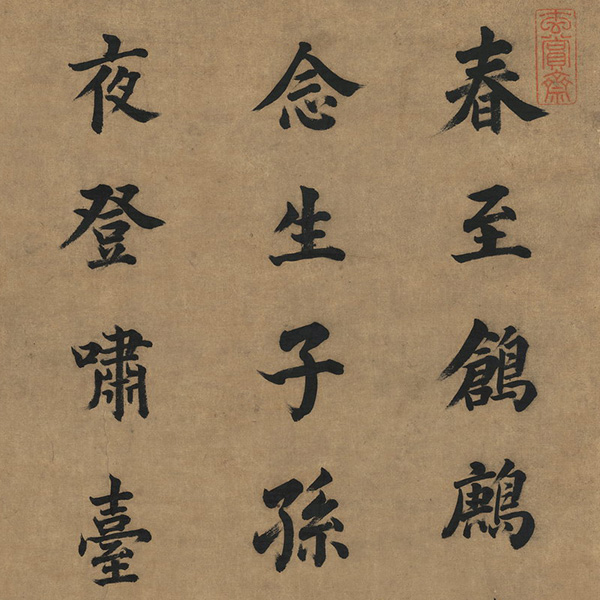 玄賞齋
春至鶬鶊
念生子孫
夜登嘯臺